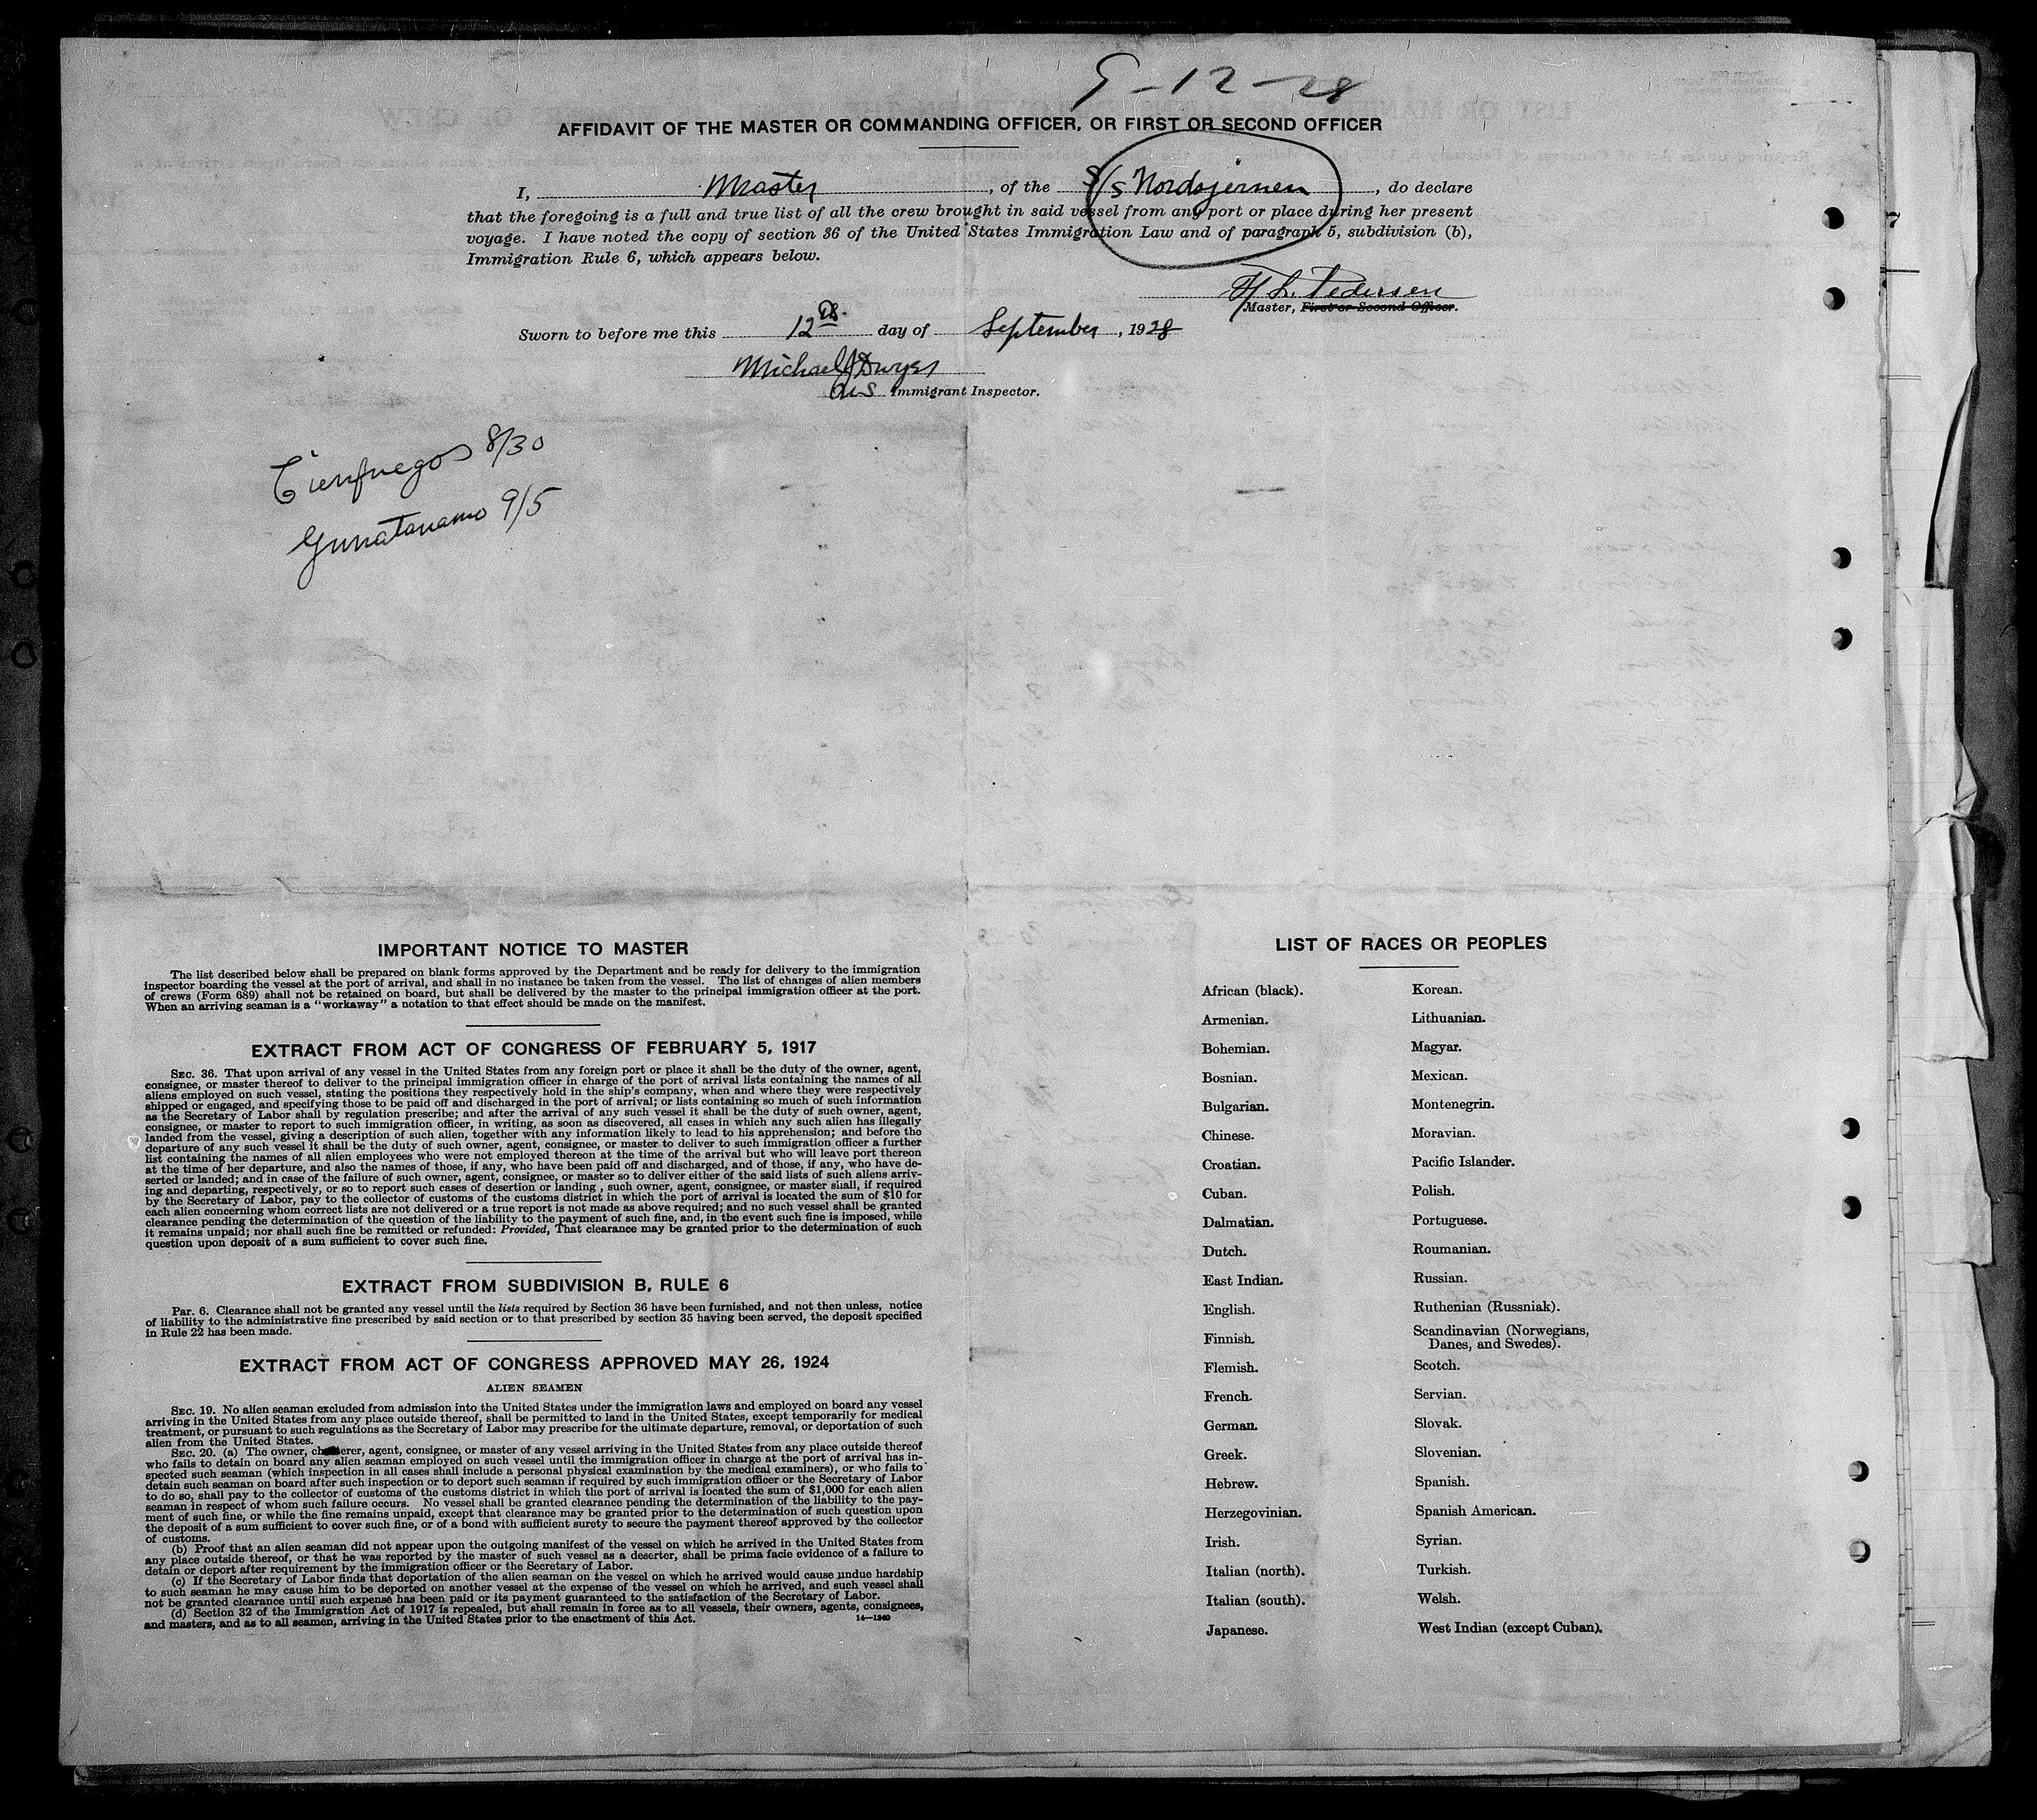 9-12-28
AFFIDAVIT OF THE MASTER OR COMMANDING OFFICER, OR FIRST OR SECOND OFFICER
I, Master, of the S/S Nordsjernen, do declare
that the foregoing is a full and true list of all the crew brought in said vessel from any port or place during her present
voyage. I have noted the copy of section 36 of the United States Immigration Law and of paragraph 5, subdivision (b),
Immigration Rule 6, which appears below.
H. L. Pedersen
Master, First or Second Officer.
Sworn to before me this 12th day of September, 1928
Michael J Dwyer
Immigrant Inspector.
Cienfuegos 8/30
Gunatanamo 9/5
IMPORTANT NOTICE TO MASTER
The list described below shall be prepared on blank forms approved by the Department and be ready for delivery to the immigration
inspector boarding the vessel at the port of arrival, and shall in no instance be taken from the vessel. The list of changes of alien members
of crews (Form 689) shall not be retained on board, but shall be delivered by the master to the principal immigration officer at the port.
When an arriving seaman is a "workaway" a notation to that effect should be made on the manifest.
EXTRACT FROM ACT OF CONGRESS OF FEBRUARY 5, 1917
SEC. 36. That upon arrival of any vessel in the United States from any foreign port or place it shall be the duty of the owner, agent,
consignee, or master thereof to deliver to the principal immigration officer in charge of the port of arrival lists containing the names of all
aliens employed on such vessel, stating the positions they respectively hold in the ship's company, when and where they were respectively
shipped or engaged, and specifying those to be paid off and discharged in the port of arrival; or lists containing so much of such information
as the Secretary of Labor shall by regulation prescribe; and after the arrival of any such vessel it shall be the duty of such owner, agent,
consignee, or master to report to such immigration officer, in writing, as soon as discovered, all cases in which any such alien has illegally
landed from the vessel, giving a description of such alien, together with any information likely to lead to his apprehension; and before the
departure of any such vessel it shall be the duty of such owner, agent, consignee, or master to deliver to such immigration officer a further
list containing the names of all alien employees who were not employed thereon at the time of the arrival but who will leave port thereon
at the time of her departure, and also the names of those, if any, who have been paid off and discharged, and of those, if any, who have de-
serted or landed; and in case of the failure of such owner, agent, consignee, or master so to deliver either of the said lists of such aliens arriv-
ing and departing, respectively, or so to report such cases of desertion or landing, such owner, agent, consignee, or master shall, if required
by the Secretary of Labor, pay to the collector of customs of the customs district in which the port of arrival is located the sum of $10 for
each alien concerning whom correct lists are not delivered or a true report is not made as above required; and no such vessel shall be granted
clearance pending the determination of the question of the liability to the payment of such fine, and, in the event such fine is imposed, while
it remains unpaid; nor shall such fine be remitted or refunded: Provided, That clearance may be granted prior to the determination of such
question upon deposit of a sum sufficient to cover such fine.
EXTRACT FROM SUBDIVISION B, RULE 6
Par. 6. Clearance shall not be granted any vessel until the lists required by Section 36 have been furnished, and not then unless, notice
of liability to the administrative fine prescribed by said section or to that prescribed by section 35 having been served, the deposit specified
in Rule 22 has been made.
EXTRACT FROM ACT OF CONGRESS APPROVED MAY 26, 1924
ALIEN SEAMEN
SEC. 19. No alien seaman excluded from admission into the United States under the immigration laws and employed on board any vessel
arriving in the United States from any place outside thereof, shall be permitted to land in the United States, except temporarily for medical
treatment, or pursuant to such regulations as the Secretary of Labor may prescribe for the ultimate departure, removal, or deportation of such
alien from the United States.
SEC. 20. (a) The owner, charterer, agent, consignee, or master of any vessel arriving in the United States from any place outside thereof
who fails to detain on board any alien seaman employed on such vessel until the immigration officer in charge at the port of arrival has in-
spected such seaman (which inspection in all cases shall include a personal physical examination by the medical examiners), or who fails to
detain such seaman on board after such inspection or to deport such seaman if required by such immigration officer or the Secretary of Labor
to do so, shall pay to the collector of customs of the customs district in which the port of arrival is located the sum of $1,000 for each alien
seaman in respect of whom such failure occurs. No vessel shall be granted clearance pending the determination of the liability to the pay-
ment of such fine, or while the fine remains unpaid, except that clearance may be granted prior to the determination of such question upon
the deposit of a sum sufficient to cover such fine, or of a bond with sufficient surety to secure the payment thereof approved by the collector
of customs.
(b) Proof that an alien seaman did not appear upon the outgoing manifest of the vessel on which he arrived in the United States from
any place outside thereof, or that he was reported by the master of such vessel as a deserter, shall be prima facie evidence of a failure to
detain or deport after requirement by the immigration officer or the Secretary of Labor.
(c) If the Secretary of Labor finds that deportation of the alien seaman on the vessel on which he arrived would cause undue hardship
to such seaman he may cause him to be deported on another vessel at the expense of the vessel on which he arrived, and such vessel shall
not be granted clearance until such expense has been paid or its payment guaranteed to the satisfaction of the Secretary of Labor.
(d) Section 32 of the Immigration Act of 1917 is repealed, but shall remain in force as to all vessels, their owners, agents, consignees,
and masters, and as to all seamen, arriving in the United States prior to the enactment of this Act.
14—1240
LIST OF RACES OR PEOPLES
African (black).
Armenian.
Bohemian.
Bosnian.
Bulgarian.
Chinese.
Croatian.
Cuban.
Dalmatian.
Dutch.
East Indian.
English.
Finnish.
Flemish.
French.
German.
Greek.
Hebrew.
Herzegovinian.
Irish.
Italian (north).
Italian (south).
Japanese.
Korean.
Lithuanian.
Magyar.
Mexican.
Montenegrin.
Moravian.
Pacific Islander.
Polish.
Portuguese.
Roumanian.
Russian.
Ruthenian (Russniak).
Scandinavian (Norwegians,
Danes, and Swedes).
Scotch.
Servian.
Slovak.
Slovenian.
Spanish.
Spanish American.
Syrian.
Turkish.
Welsh.
West Indian (except Cuban).